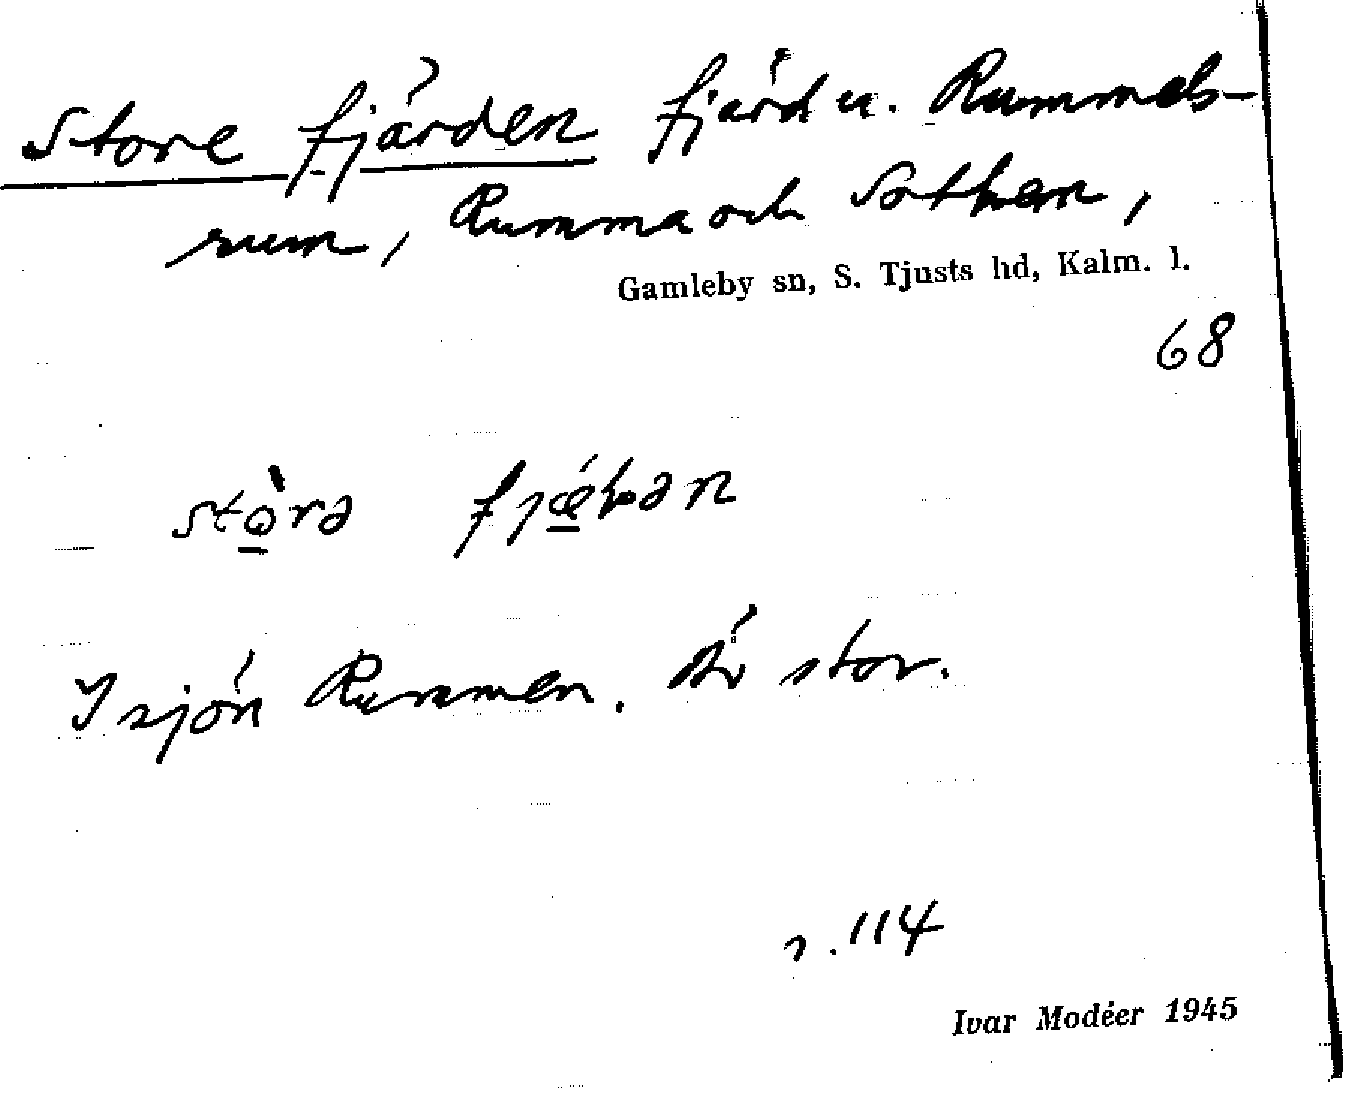 Store fjärden fjärd u. Rummels-
rum, Rumma och Sothem,
Gamleby sn, S. Tjusts hd, Kalm. l.
68
stòrə fjǽɖən
I sjön Rummen. Är stor.
s. 114
Ivar Modéer 1945